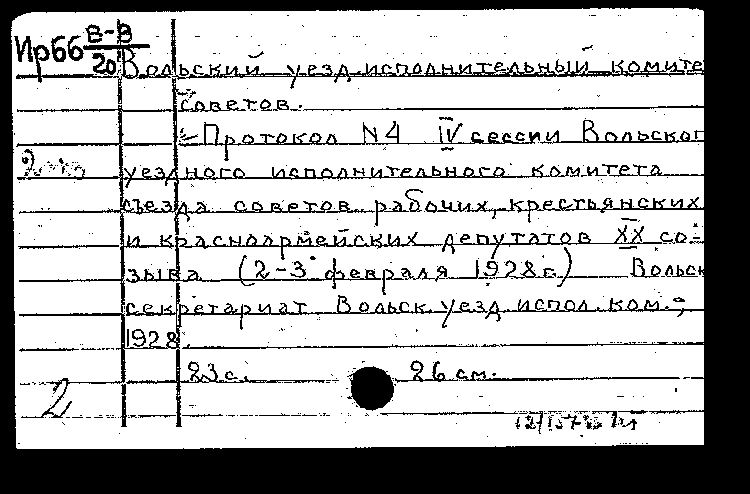 Ир66 В-В
20
Вольский уезд.исполнительный комите
советов.
Протокол N4 IV сессии Вольског
уездного исполнительного комитета
съезда советов рабочих, крестьянских
и красноармейских депутатов XX со-
зыва (2-3 февраля 1928г.) Вольск
секретариат Вольск.уезд.испол.ком.,
1928.
23с. 26 см.
2